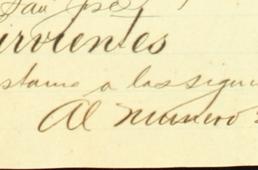 San José
irvientes
stamo a los sigui
Al numero